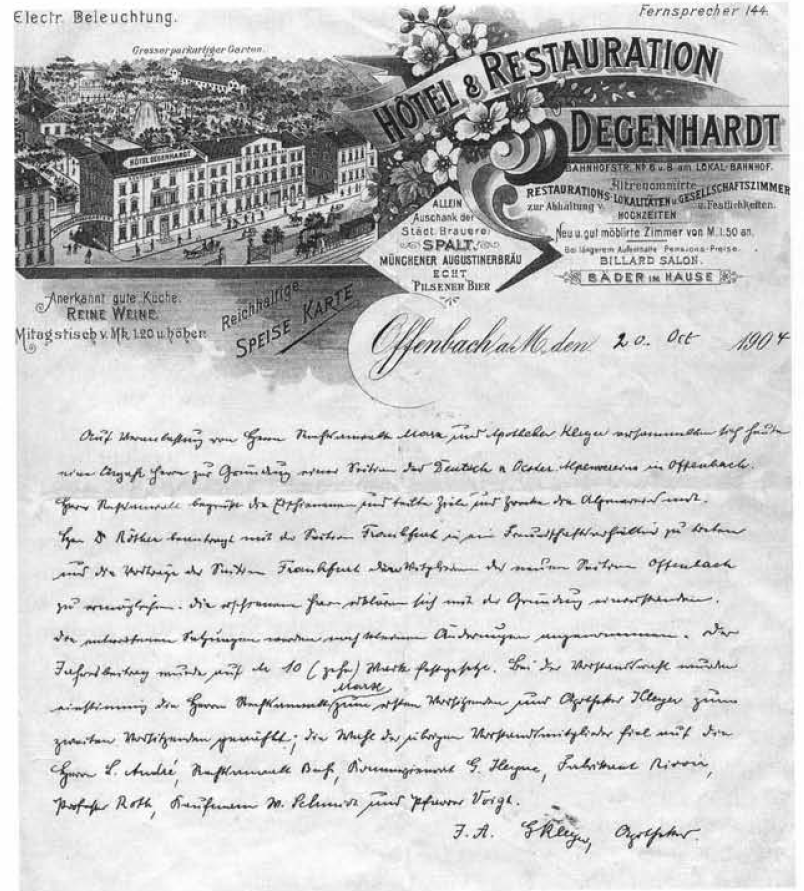 Electr. Beleuchtung.
Fernsprecher 144.
Grosser parkartiger Garten.
HÔTEL & RESTAURATION
DEGENHARDT
HÔTEL DEGENHARDT
BAHNHOFSTR. Nº 6 u. 8 am LOKAL-BAHNHOF.
Altrenommirte
RESTAURATIONS-LOKALITÄTEN u. GESELLSCHAFTSZIMMER
zur Abhaltung v. HOCHZEITEN u. Festlichkeiten.
Neu u. gut möblirte Zimmer von M. 1.50 an.
Bei längerem Aufenthalte Pensions-Preise.
BILLARD SALON.
BÄDER IM HAUSE
ALLEIN
Auschank der
Städt. Brauerei
SPALT.
MÜNCHENER AUGUSTINERBRÄU
ECHT
PILSENER BIER
Anerkannt gute Küche.
REINE WEINE.
Mitagstisch v. Mk. 1.20 u. höher.
Reichhaltige
SPEISE KARTE
Offenbach a. M. den 20. Oct 1904
Auf Veranlassung von Herrn Rechtsanwalt Marx und Apotheker Kleyer versammelten sich heute
eine Anzahl Herrn zur Gründung einer Section des Deutsch u Oester Alpenvereins in Offenbach.
Herr Rechtsanwalt begrüßt die Erschienenen und teilte Ziele und Zwecke des Alpenvereins mit.
Herr Dr Röther beantragt mit der Section Frankfurt in ein Freundschaftsverhältnis zu treten
und die Vorträge der Section Frankfurt den Mitgliedern der neuen Section Offenbach
zu ermöglichen. Die erschienenen Herrn erklären sich mit der Gründung einverstanden.
Die entworfenen Satzungen werden nach kleinen Änderungen angenommen. Der
Jahresbeitrag wurde auf 10 (zehn) Mark festgesetzt. Bei der Vorstandswahl wurden
einstimmig die Herrn Rechtsanwalt Marx zum ersten Vorsitzenden und Apotheker Kleyer zum
zweiten Vorsitzenden gewählt; die Wahl der übrigen Vorstandsmitglieder fiel auf die
Herrn L. André, Rechtsanwalt, Kommerzienrat G. Fabrikant
Professor Roth, Kaufmann W. Schmidt und Pfarrer Voigt.
I. A. GKleyer, Apotheker.